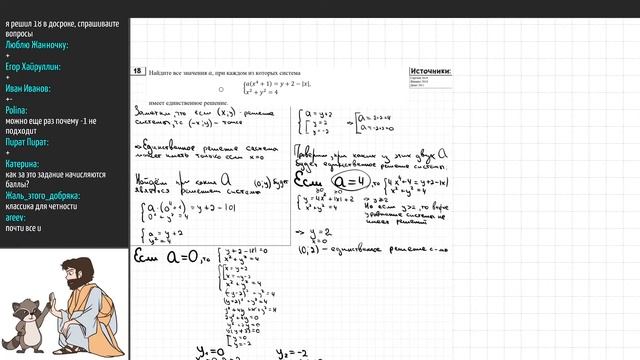 я решил 18 в досроке, спрашивайте
вопросы
Люблю Жанночку:
+
Егор Хайруллин:
+
Иван Иванов:
+-
Polina:
можно еще раз почему -1 не
подходит
Пират Пират:
+
Катерина:
как за это задание начисляются
баллы?
Жаль_этого_добряка:
классика для четности
areev:
почти все и
18
Найдите все значения a, при каждом из которых система
{a(x⁴ + 1) = y + 2 − |x|,
x² + y² = 4
имеет единственное решение.
Источники:
Заметим, что если (x;y) - решение
системы, то (-x;y) - тоже
⇒ Единственное решение система
может иметь только если x=0
Найдём при каких a (0;y) будет
являться решением системы
{a·(0⁴+1)=y+2-|0|
0²+y²=4
{a=y+2
y²=4
{a=y+2
[y=2
y=-2
⇒ [a=2+2=4
a=-2+2=0
Проверим, при каких из этих двух a
будет единственное решение системы.
Если a=4, то {4x⁴+4=y+2-|x|
x²+y²=4
{y=4x⁴+|x|+2 ⇒ y≥2
x²+y²=4
Но если y>2, то второе
уравнение системы не
имеет решений
⇒ y=2
x=0
(0;2) - единственное решение с-мы
Если a=0, то
{y+2-|x|=0
x²+y²=4
{[x=y+2
x=-y-2
x²+y²=4
(-y-2)²+y²=4
(y+2)²+y²=4
y²+4y+4+y²=4
2y²+4y=0
y²+2y=0
y(y+2)=0
[y=0
y=-2
y₁=0
y₂=-2